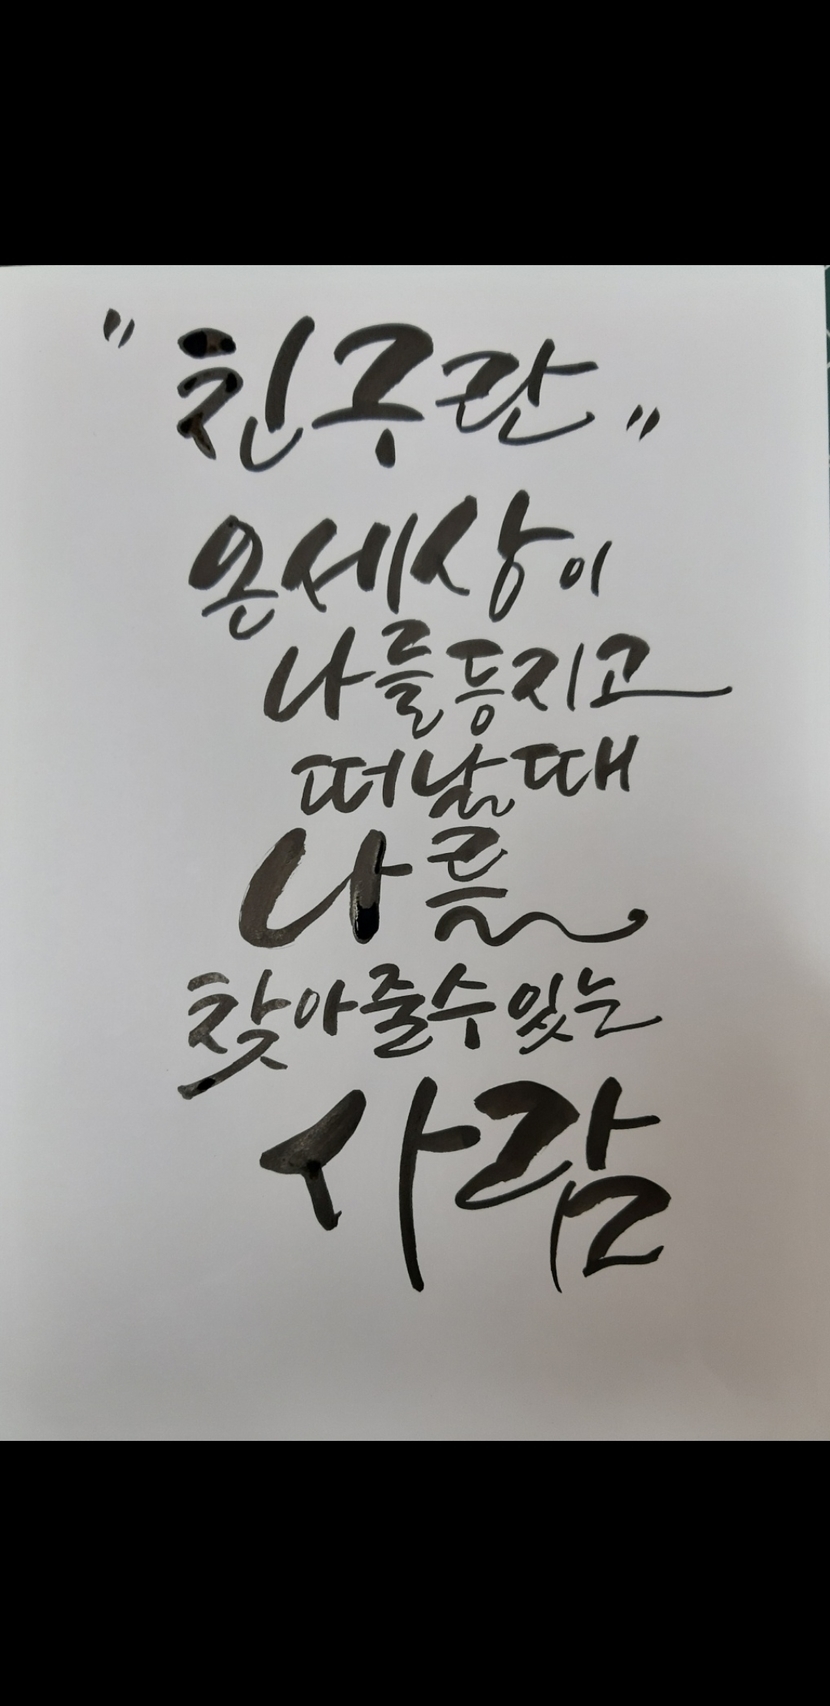 "친구란"
온세상이
나를등지고
떠날때
나를
찾아줄수있는
사람